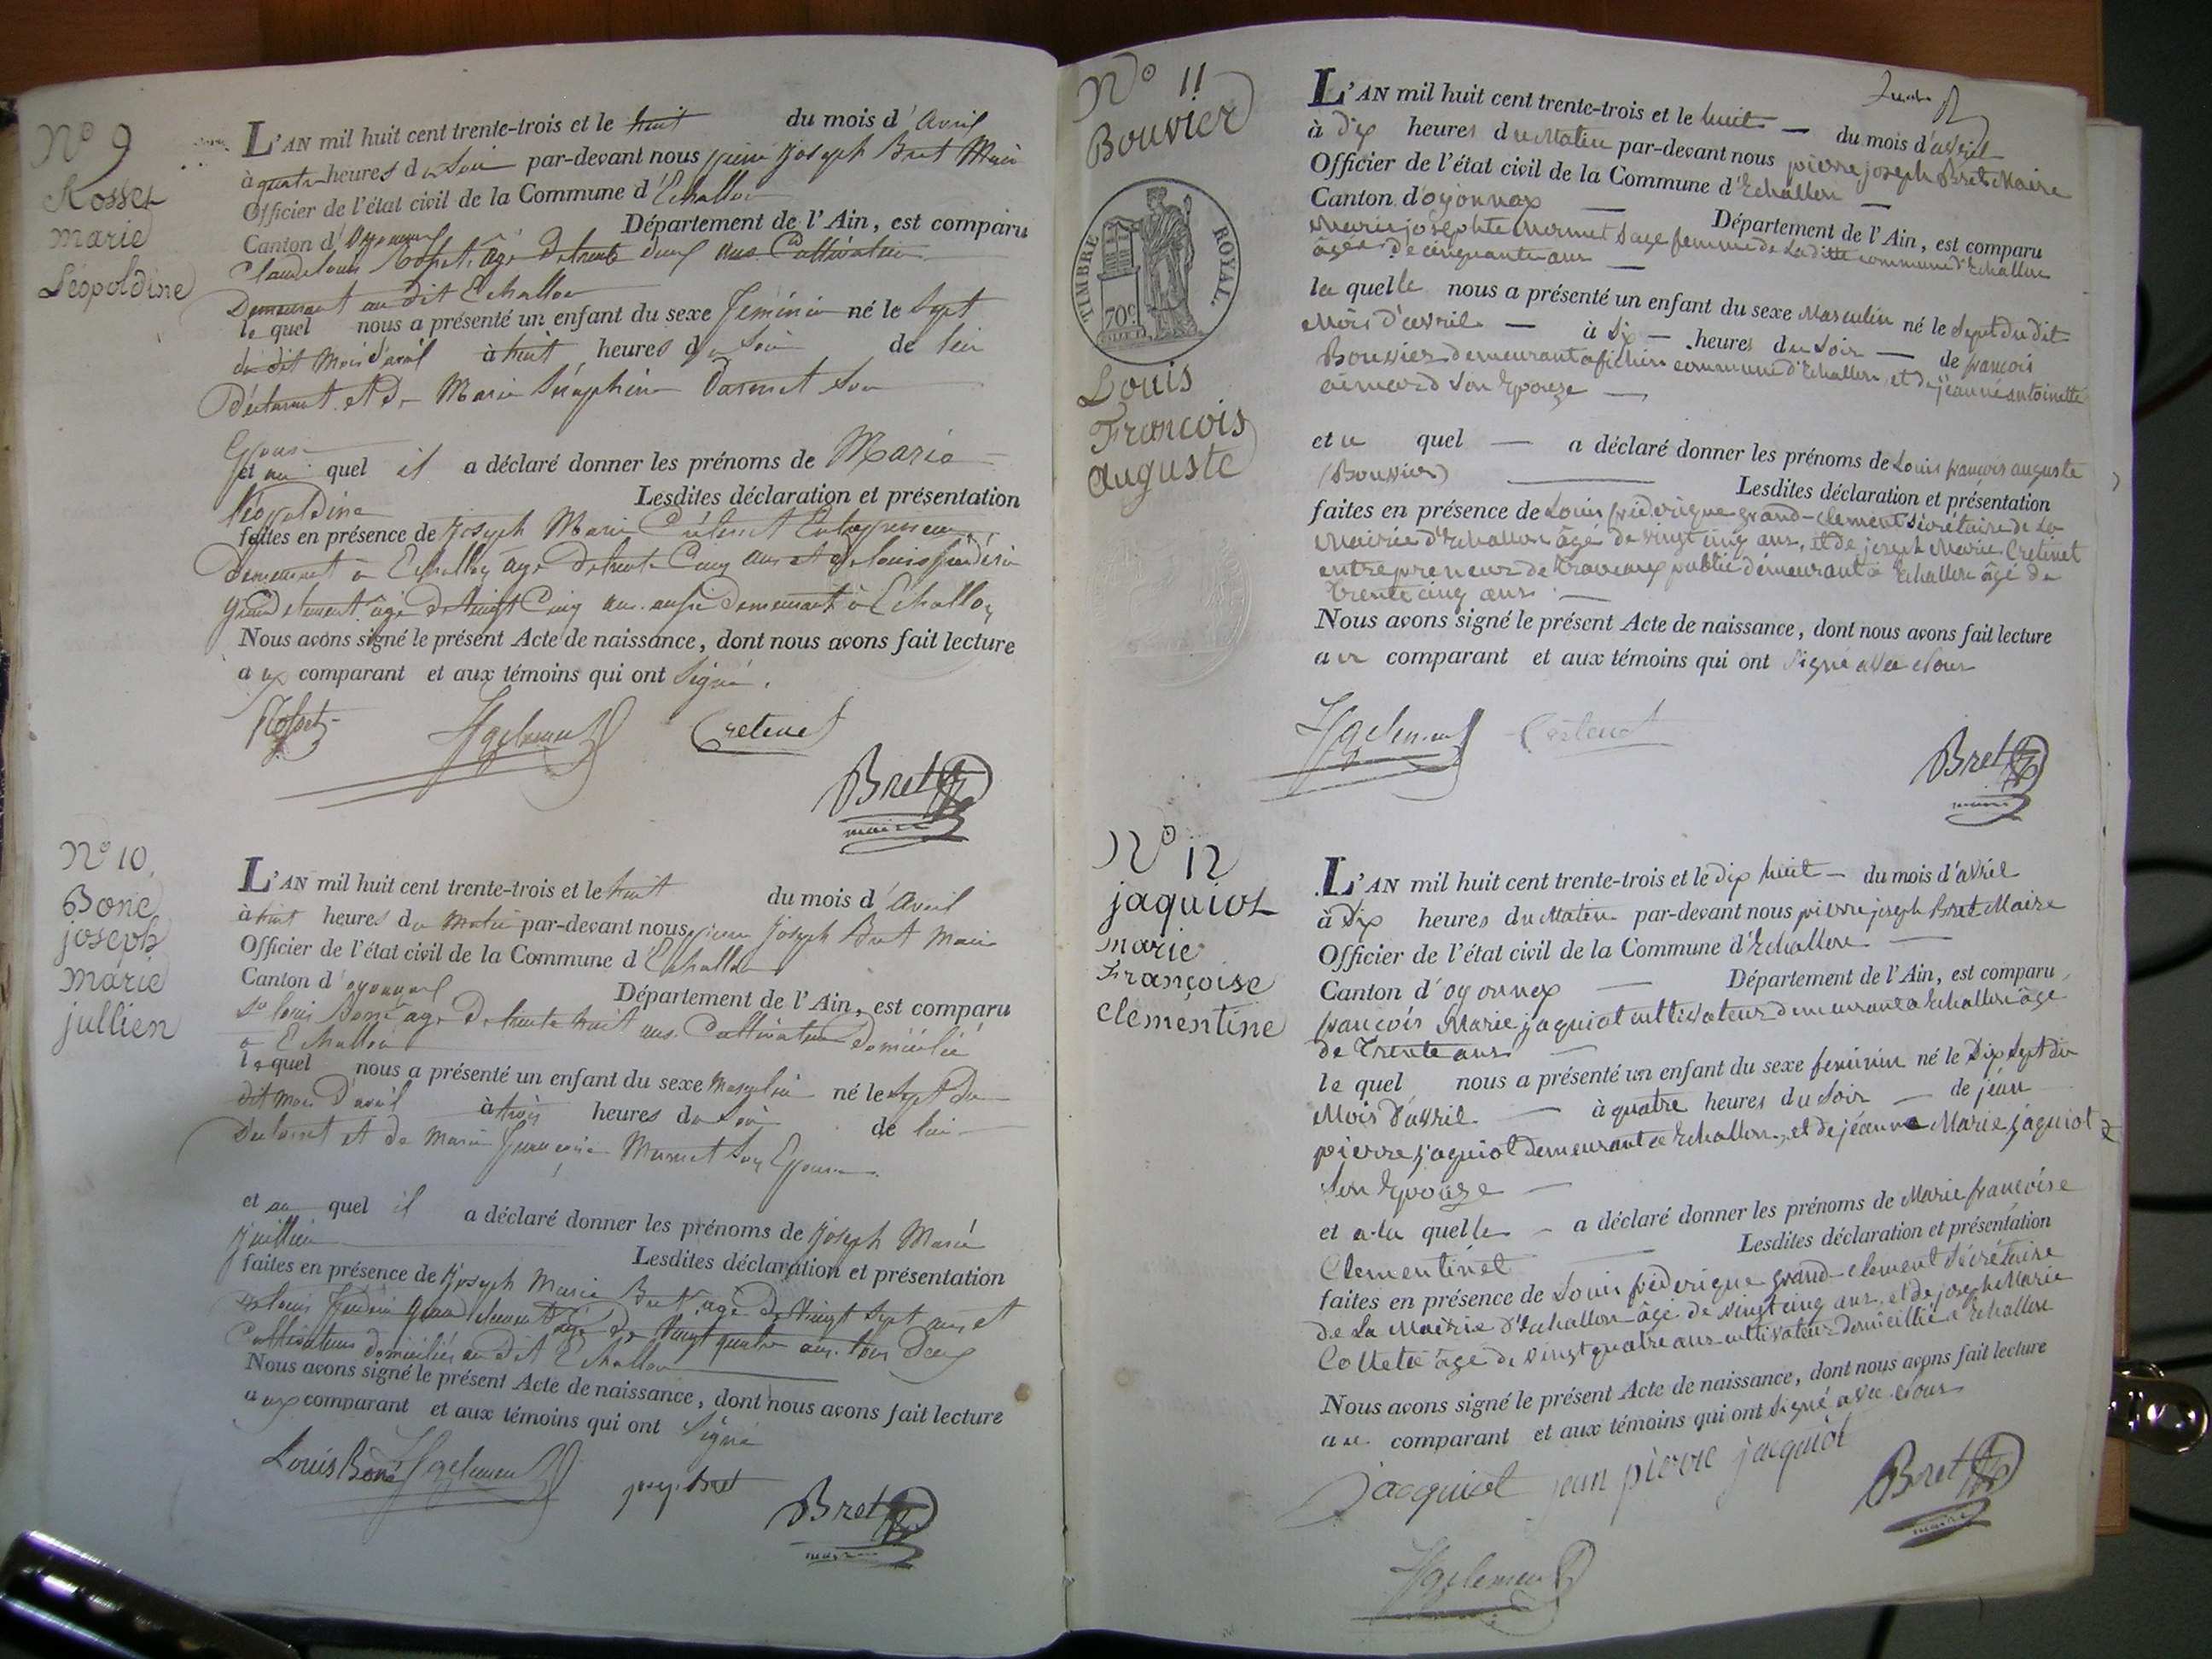 N° 9
Rosset
marie
Léopoldine
L'AN mil huit cent trente-trois et le huit du mois d'Avril
à quatre heures du Soir par-devant nous pierre joseph Bret Maire
Officier de l'état civil de la Commune d'Echallon
Canton d'Oyonnax Département de l'Ain, est comparu
Claude louis Rosset, âgé de trente deux ans Cultivateur
Demeurant au dit Echallon
le quel nous a présenté un enfant du sexe féminin né le Sept
du dit Mois d'avril à huit heures du Soir de lui
Déclarant et de Marie Séraphine Darmet Son
Epouse
et au quel il a déclaré donner les prénoms de Marie
Léopoldine Lesdites déclaration et présentation
faites en présence de joseph Marie Crétenet Entrepreneur
demeurant à Echallon âgé de trente Cinq ans et de louis frédéric
grand clement âgé de vingt Cinq ans aussi demeurant à Echallon
Nous avons signé le présent Acte de naissance, dont nous avons fait lecture
aux comparant et aux témoins qui ont Signé.
Rosset
fgclement
Cretenet
Bret
maire
N° 10.
Bone
joseph
marie
jullien
L'AN mil huit cent trente-trois et le huit du mois d'Avril
à huit heures du Matin par-devant nous pierre joseph Bret Maire
Officier de l'état civil de la Commune d'Echallon
Canton d'oyonnax Département de l'Ain, est comparu
Sr louis Boné âgé de trente huit ans Cultivateur domicilié
à Echallon
le quel nous a présenté un enfant du sexe masculin né le Sept du
dit mois d'avril à trois heures du Soir de lui
Déclarant et de Marie françoise Mermet Son Epouse.
et au quel il a déclaré donner les prénoms de joseph Marie
juillien Lesdites déclaration et présentation
faites en présence de joseph Marie Bret âgé de Vingt Sept ans et
de louis frederic grand clement âgé de Vingt quatre ans tous Deux
Cultivateurs domiciliés au dit Echallon
Nous avons signé le présent Acte de naissance, dont nous avons fait lecture
aux comparant et aux témoins qui ont Signé
Louis Boné
fgclement
josep. bret
Bret
maire
N° 11
Bouvier
TIMBRE ROYAL.
70c
Louis
François
auguste
L'AN mil huit cent trente-trois et le huit du mois d'avril
à dix heures du Matin par-devant nous pierre joseph Bret Maire
Officier de l'état civil de la Commune d'Echallon
Canton d'oyonnax Département de l'Ain, est comparu
Marie josephte Mermet Sage femme de La ditte commune d'Echallon
âgée de cinquante ans
la quelle nous a présenté un enfant du sexe Masculin né le Sept du dit
Mois d'avril à Six heures du Soir de françois
Bouvier demeurant a fichin commune d'Echallon, et de jeanne antoinette
aimard Son Epouze
et a quel a déclaré donner les prénoms de Louis françois auguste
(Bouvier) Lesdites déclaration et présentation
faites en présence de Louis fréderique grand-clement Sécrétaire de La
Mairie d'Echallon âgé de vingt cinq ans, et de joseph Marie Cretinet
entrepreneur de travaux public demeurant a Echallon âgé de
trente cinq ans
Nous avons signé le présent Acte de naissance, dont nous avons fait lecture
au comparant et aux témoins qui ont Signé avec Nous
fgclement
Cretenet
Bret
maire
N° 12
jaquiot
marie
Françoise
clementine
L'AN mil huit cent trente-trois et le dix huit du mois d'avril
à Dix heures du Matin par-devant nous pierre joseph Bret Maire
Officier de l'état civil de la Commune d'Echallon
Canton d'oyonnax Département de l'Ain, est comparu
françois Marie jaquiot cultivateur demeurant a Echallon âgé
de Trente ans
le quel nous a présenté un enfant du sexe feminin né le Dix Sept du
Mois d'avril à quatre heures du Soir de jean
pierre jaquiot demeurant a Echallon, et de jeanne Marie jaquiot
Son Epouze
et a la quelle a déclaré donner les prénoms de Marie françoise
Clementinet Lesdites déclaration et présentation
faites en présence de Louis fréderique grand-clement Sécrétaire
de La Mairie d'Echallon âgé de vingt cinq ans, et de joseph Marie
Colletie âgé de vingt quatre ans cultivateur domicillié a Echallon
Nous avons signé le présent Acte de naissance, dont nous avons fait lecture
au comparant et aux témoins qui ont Signé avec Nous
jacquiot
jean pierre jacquiot
Bret
maire
fgclement